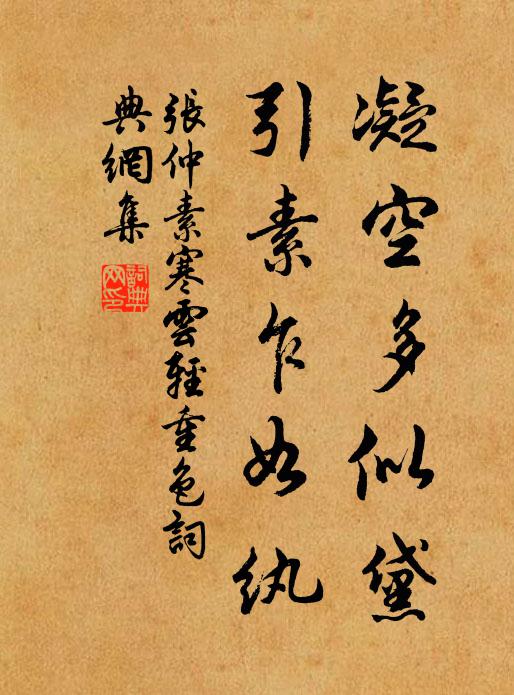 凝空多似黛
引素乍如紈
張仲素寒雲輕重色詞
典網集
詞典網印